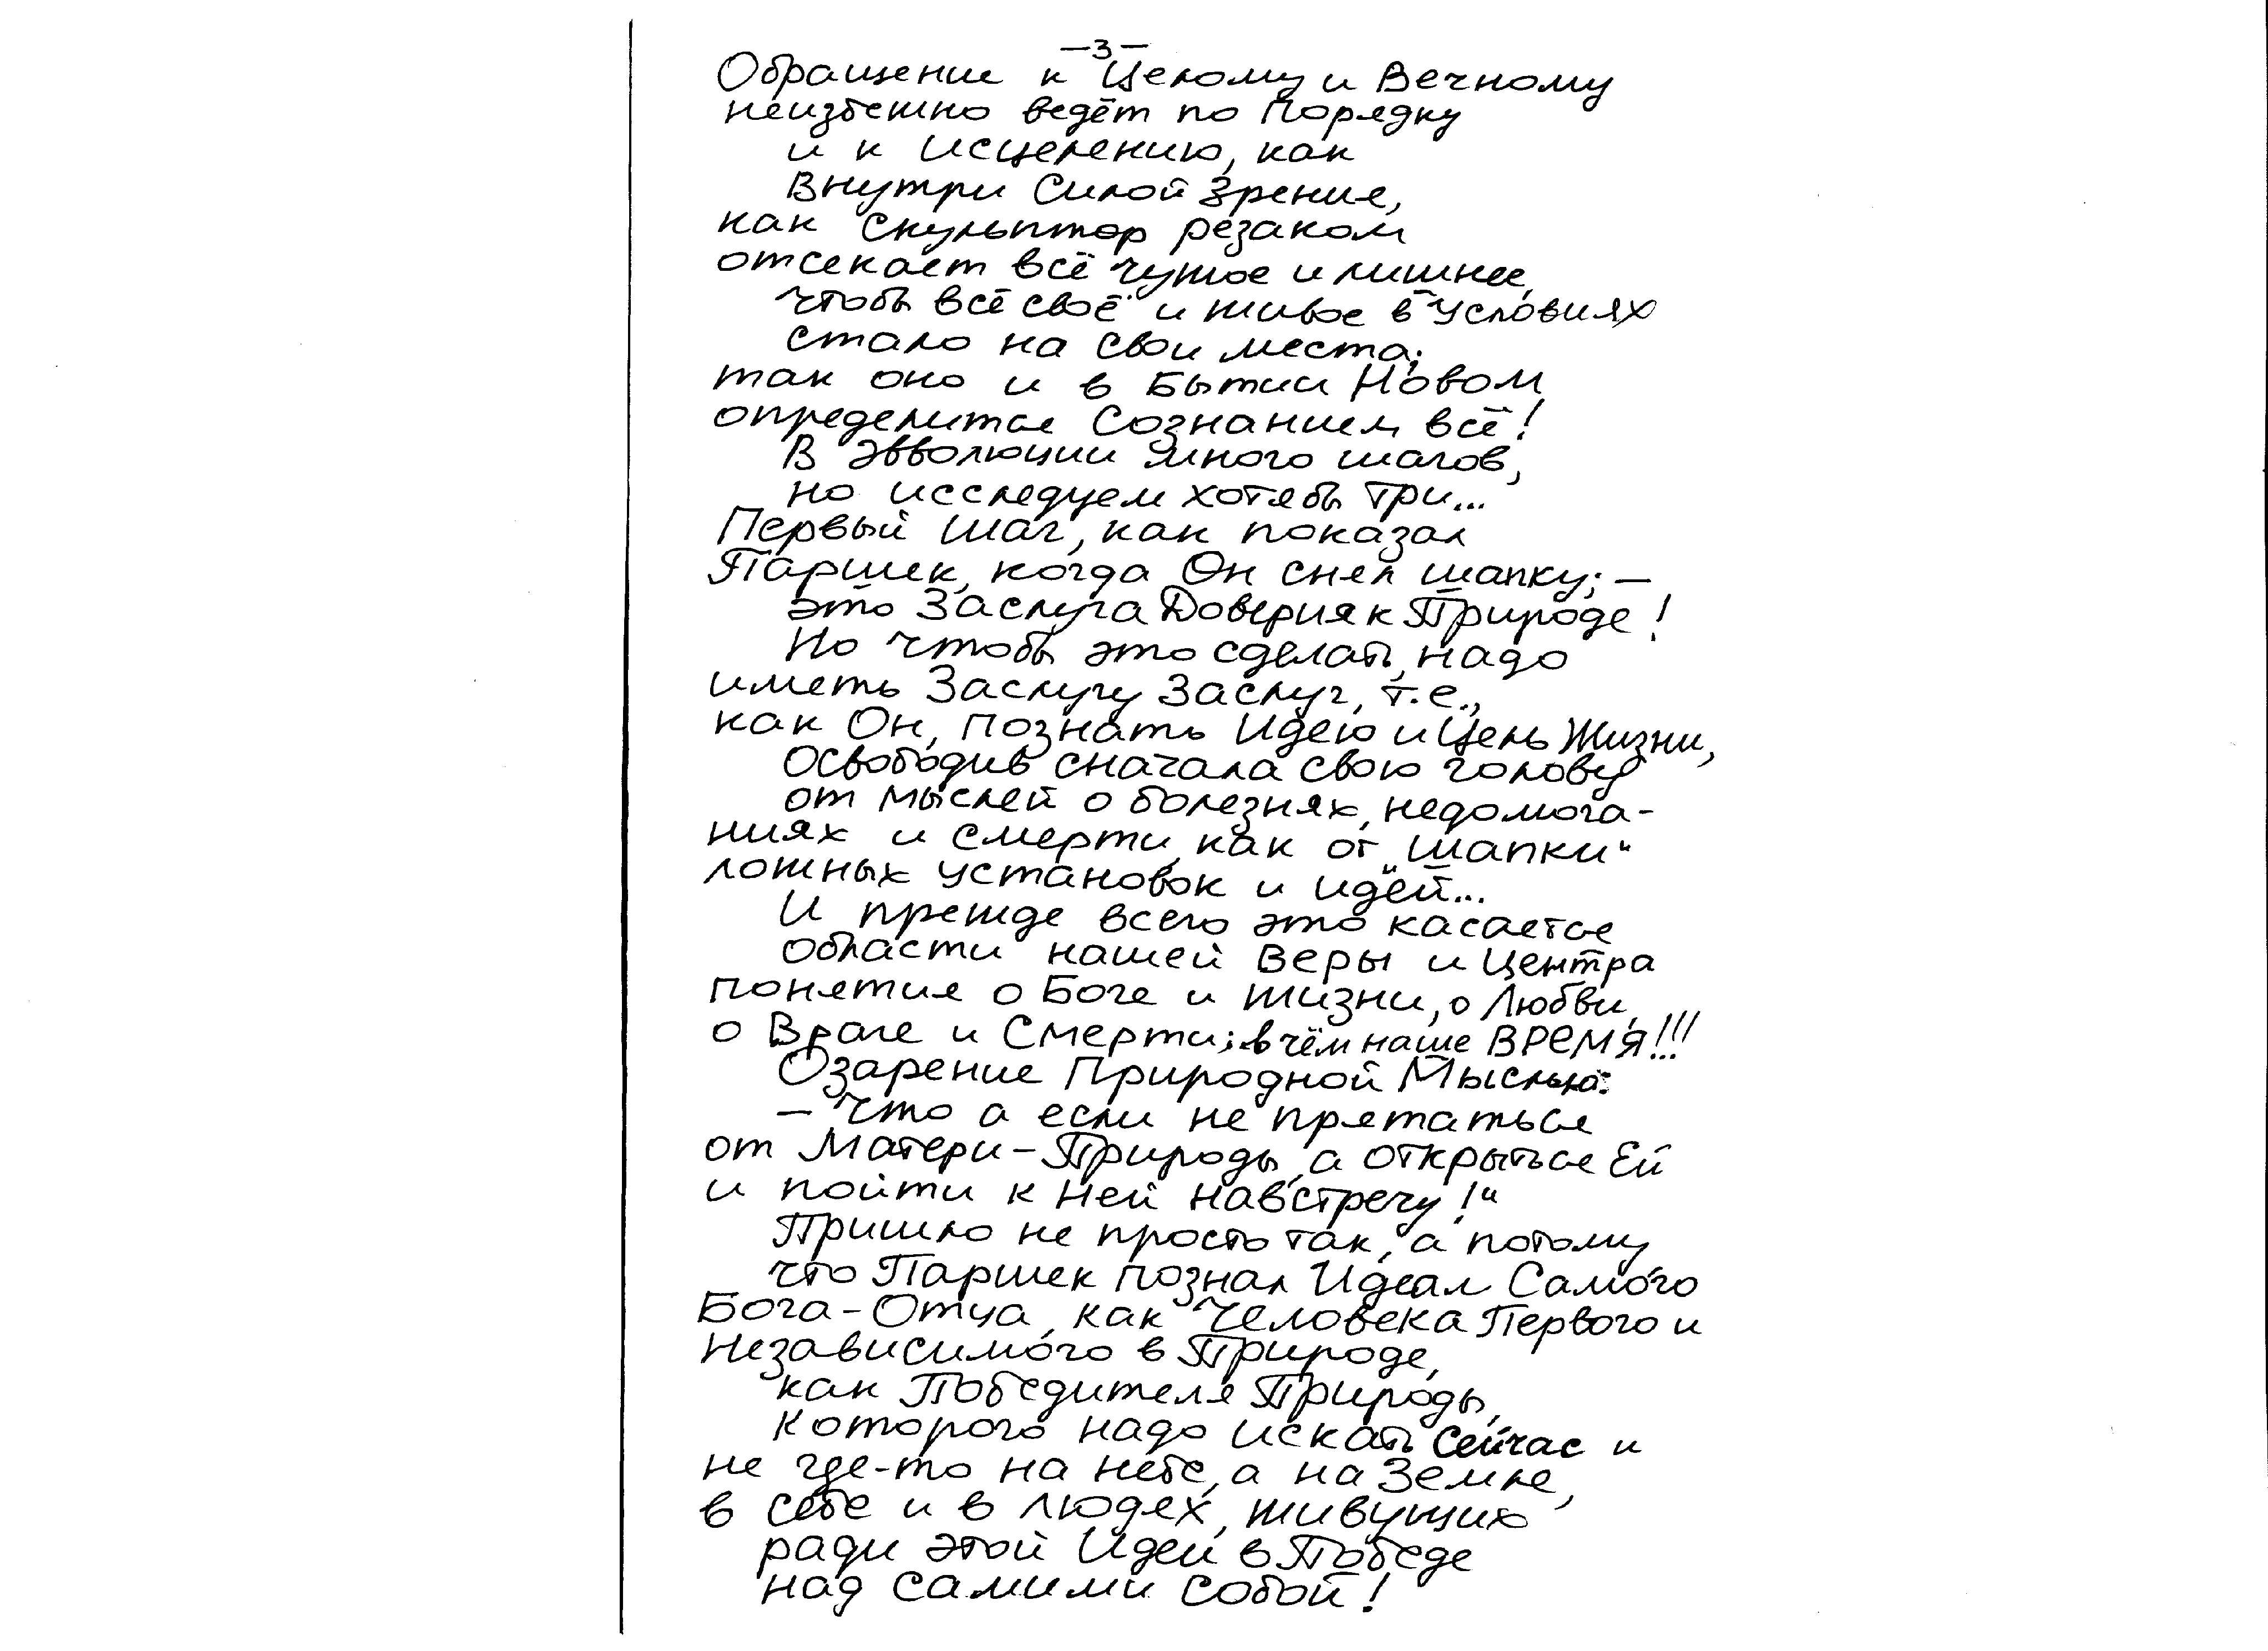 -3-
Обращение к Целому и Вечному
неизбежно ведёт по Порядку
и к исцелению, как
Внутри Силой Зрения,
как скульптор резаком
отсекает всё чужое и лишнее,
чтобы всё своё и живое в Условиях
стало на свои места;
так оно и в Бытии Новом
определится Сознанием всё!
В Эвволюции много шагов,
но исследуем хотябы три...
Первый шаг, как показал
Паршек, когда Он снял шапку; —
это Заслуга Доверия к Природе!
Но чтобы это сделать, надо
иметь Заслугу Заслуг, т.е.,
как Он, познать Идею и Цель Жизни,
Освободив сначала свою голову
от мыслей о болезнях, недомога-
ниях и смерти, как от „шапки“
ложных установок и идей...
И прежде всего это касается
области нашей Веры и Центра
понятия о Боге и жизни, о Любви,
о Враге и Смерти; в чём наше ВРЕМЯ!!!
Озарение Природной Мыслью:
— Что а если не прятаться
от Матери-Природы, а открыться Ей
и пойти к Ней навстречу!“
Пришло не просто так, а потому
что Паршек познал Идеал Самого
Бога-Отца, как Человека Первого и
Независимого в Природе,
как Победителя Природы,
которого надо искать Сейчас и
не где-то на небе, а на Земле,
в себе и в людях, живущих
ради этой Идеи в Победе
над самими собой!